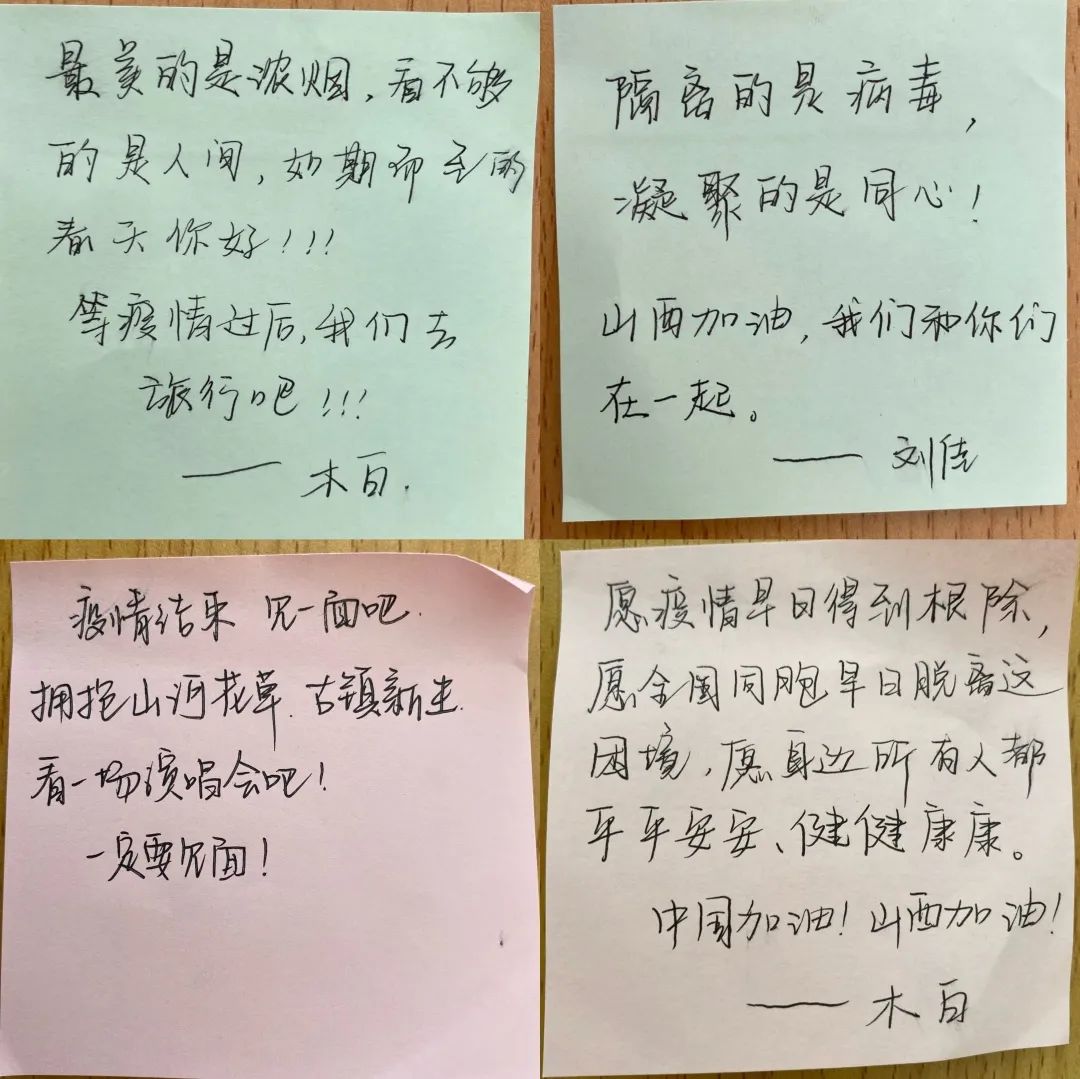 最美的是浓烟，看不够
的是人间，如期而至的
春天你好！！！
等疫情过后，我们去
旅行吧！！！
—— 木白.
隔离的是病毒，
凝聚的是同心！
山西加油，我们和你们
在一起。
—— 刘佳
疫情结束 见一面吧.
拥抱山河花草.古镇新生.
看一场演唱会吧！
一定要见面！
愿疫情早日得到根除，
愿全国同胞早日脱离这
困境，愿身边所有人都
平平安安、健健康康。
中国加油！山西加油！
—— 木白